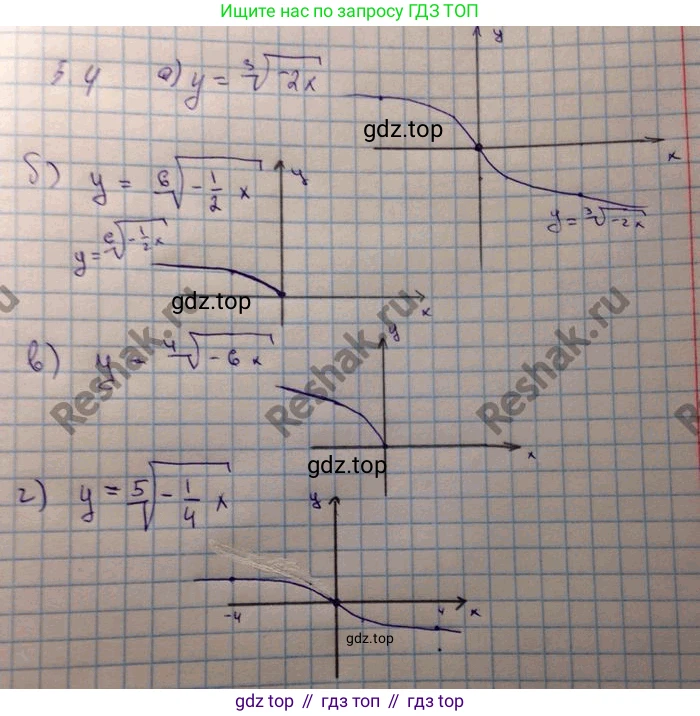 Ищите нас по запросу ГДЗ ТОП
5.4 а) y = ∛(-2x)
y
x
gdz.top
y = ∛(-2x)
б) y = ⁶√(-1/2 x)
y
y = ⁶√(-1/2 x)
gdz.top
x
Reshak.ru
Reshak.ru
Reshak.ru
в) y = ⁴√(-6x)
y
x
gdz.top
г) y = ⁵√(-1/4 x)
y
-4
4
x
gdz.top
gdz top // гдз топ // gdz top